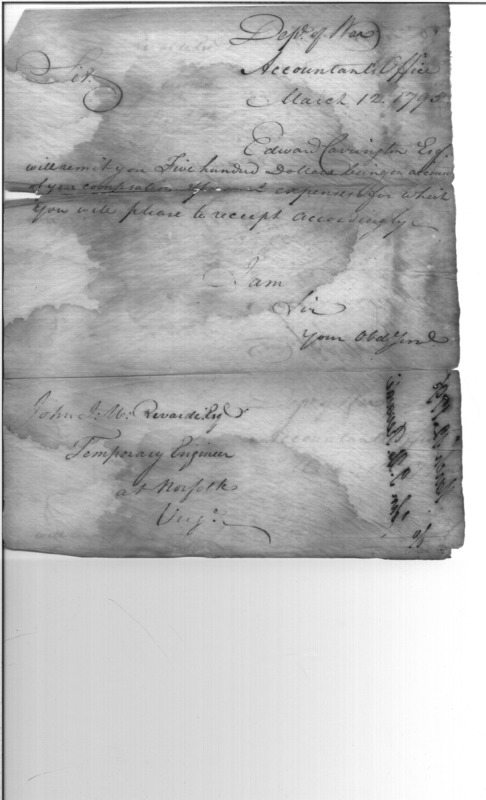 Dept. of War
Accountant's Office
March 12. 1795
Sir
Edward Carrington Esqr.
will remit you Five hundred Dollars being on account
of your compensation & expenses for which
you will please to receipt accordingly
I am
Sir
Your Obd
John J. U. Rivardi Esqr
Temporary Engineer
at Norfolk
Virga.